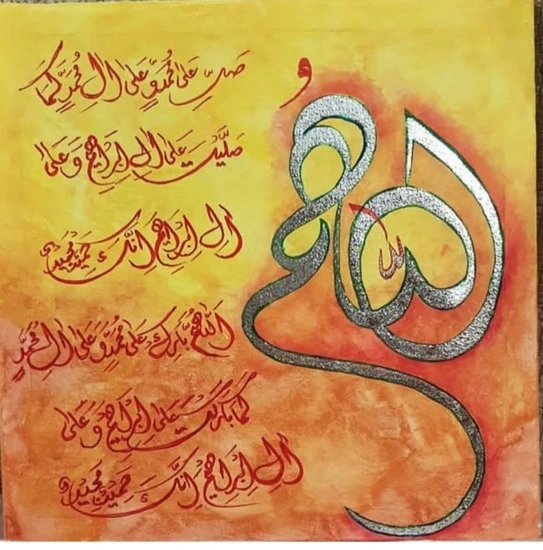 اللهم
صل على محمد وعلى ال محمد كما
صليت على ال ابراهيم وعلى
ال ابراهيم انك حميد مجيد
اللهم بارك على محمد وعلى ال محمد
كما باركت على ابراهيم وعلى
ال ابراهيم انك حميد مجيد